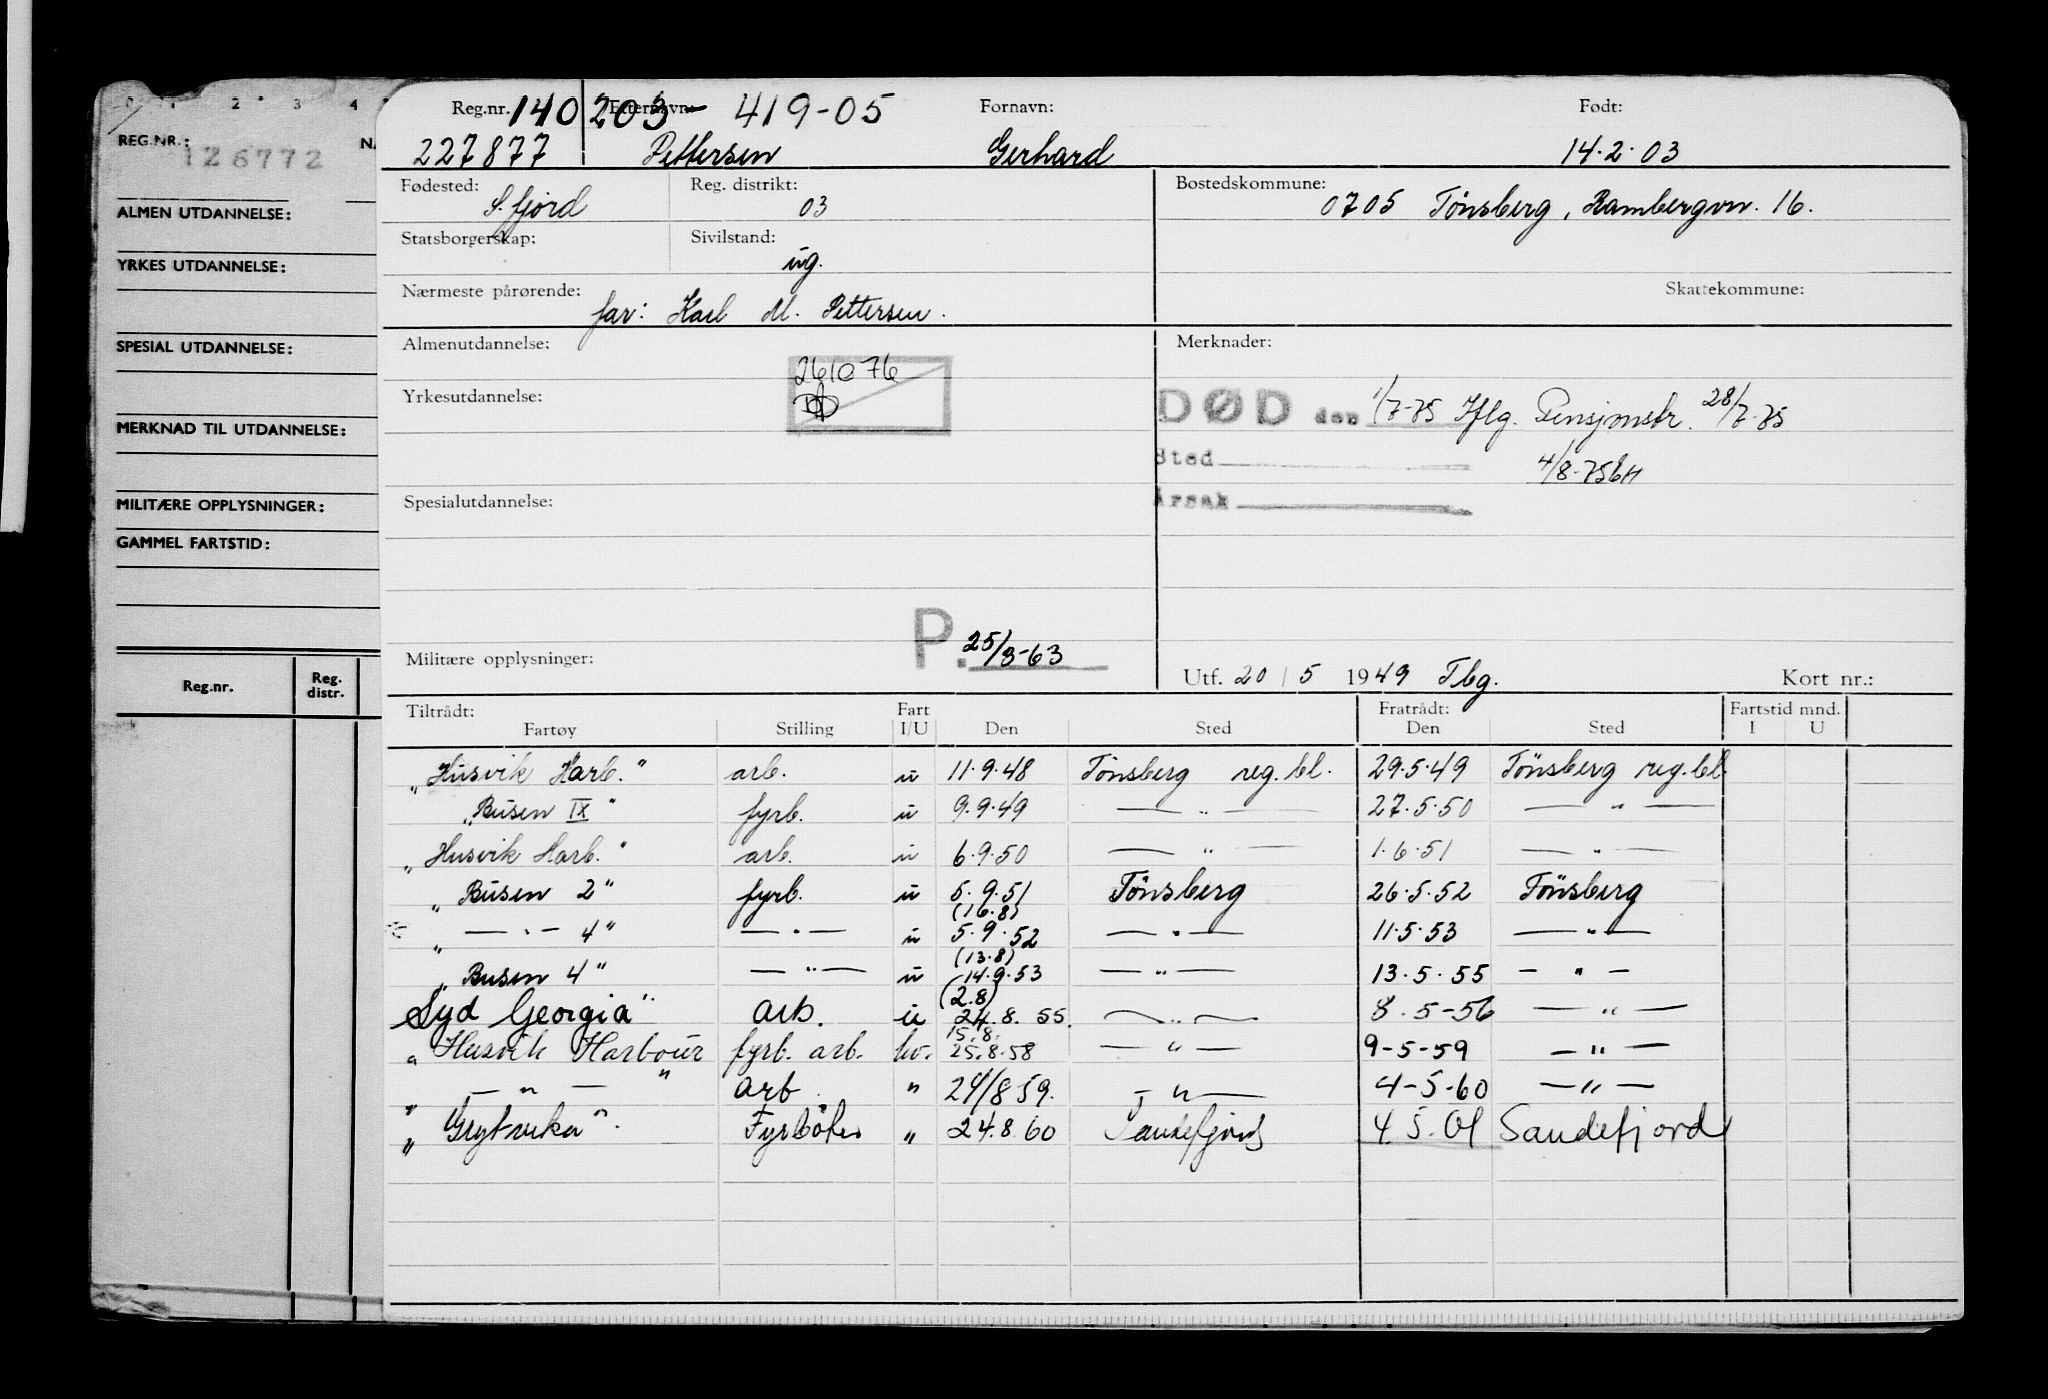 0 1 2 3 4
REG.NR.:
126772
ALMEN UTDANNELSE:
YRKES UTDANNELSE:
SPESIAL UTDANNELSE:
MERKNAD TIL UTDANNELSE:
MILITÆRE OPPLYSNINGER:
GAMMEL FARTSTID:
Reg.nr. Reg. distr.
Reg.nr. 140 203 - 419-05 Etternavn: Fornavn: Født:
227877 Pettersen Gerhard 14.2.03
Fødested: Reg. distrikt: Bostedskommune:
S. fjord 03 0705 Tönsberg, Rambergvn. 16.
Statsborgerskap: Sivilstand:
ug.
Nærmeste pårørende: Skattekommune:
far: Karl M. Pettersen.
Almenutdannelse: Merknader:
261076
Yrkesutdannelse:
DØD den 1/7-75 Iflg. Pensjonstr. 28/7-75
Sted 4/8-75
Årsak
Spesialutdannelse:
P. 25/3-63
Militære opplysninger:
Utf. 20/5 1949 Tbg. Kort nr.:
Tiltrådt: Fart Fratrådt: Fartstid mnd.
Fartøy Stilling I/U Den Sted Den Sted I U
„Husvik Harb." arb. u 11.9.48 Tönsberg reg.bl. 29.5.49 Tönsberg reg.bl.
„Busen IX" fyrb. u 9.9.49 — " — 27.5.50 — " —
„Husvik Harb." arb. u 6.9.50 — " — 1.6.51 — " —
„Busen 2" fyrb. u 5.9.51 Tönsberg 26.5.52 Tönsberg
(16.8)
„ — " — 4" — " — u 5.9.52 — " — 11.5.53 — " —
(13.8)
„Busen 4" — " — u 14.9.53 — " — 13.5.55 — " —
(2.8)
Syd Georgia" arb. u 24.8.55. — " — 8.5-56 — " —
15.8.
„Husvik Harbour fyrb. arb. hv. 25.8.58 — " — 9-5-59 — " —
„ — " — " arb " 24/8 59. — " — 4-5-60 — " —
„Grytvika". Fyrböter " 24.8.60 Sandefjord 4 5. 61 Sandefjord